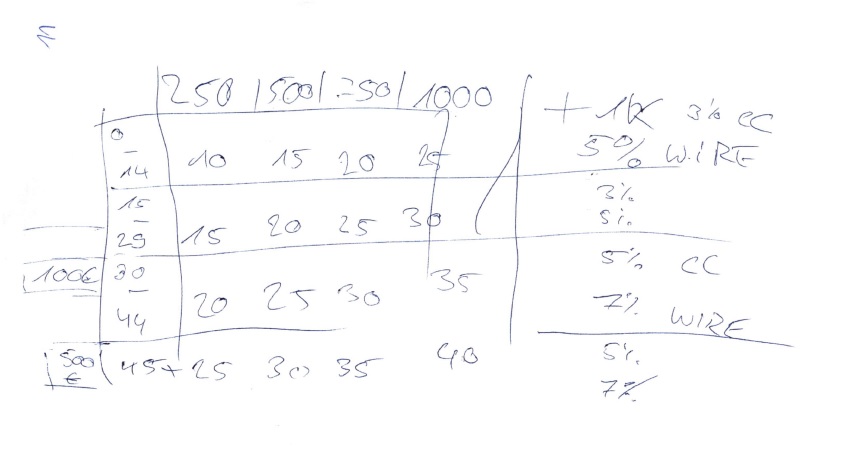 250 | 500 | 750 | 1000
+ 1K 3% CC
5% WIRE
0 - 14 10 15 20 25
15 - 29 15 20 25 30
3%
5%
100€ 30 - 44 20 25 30 35
5% CC
7% WIRE
500 € 45+ 25 30 35 40
5%
7%